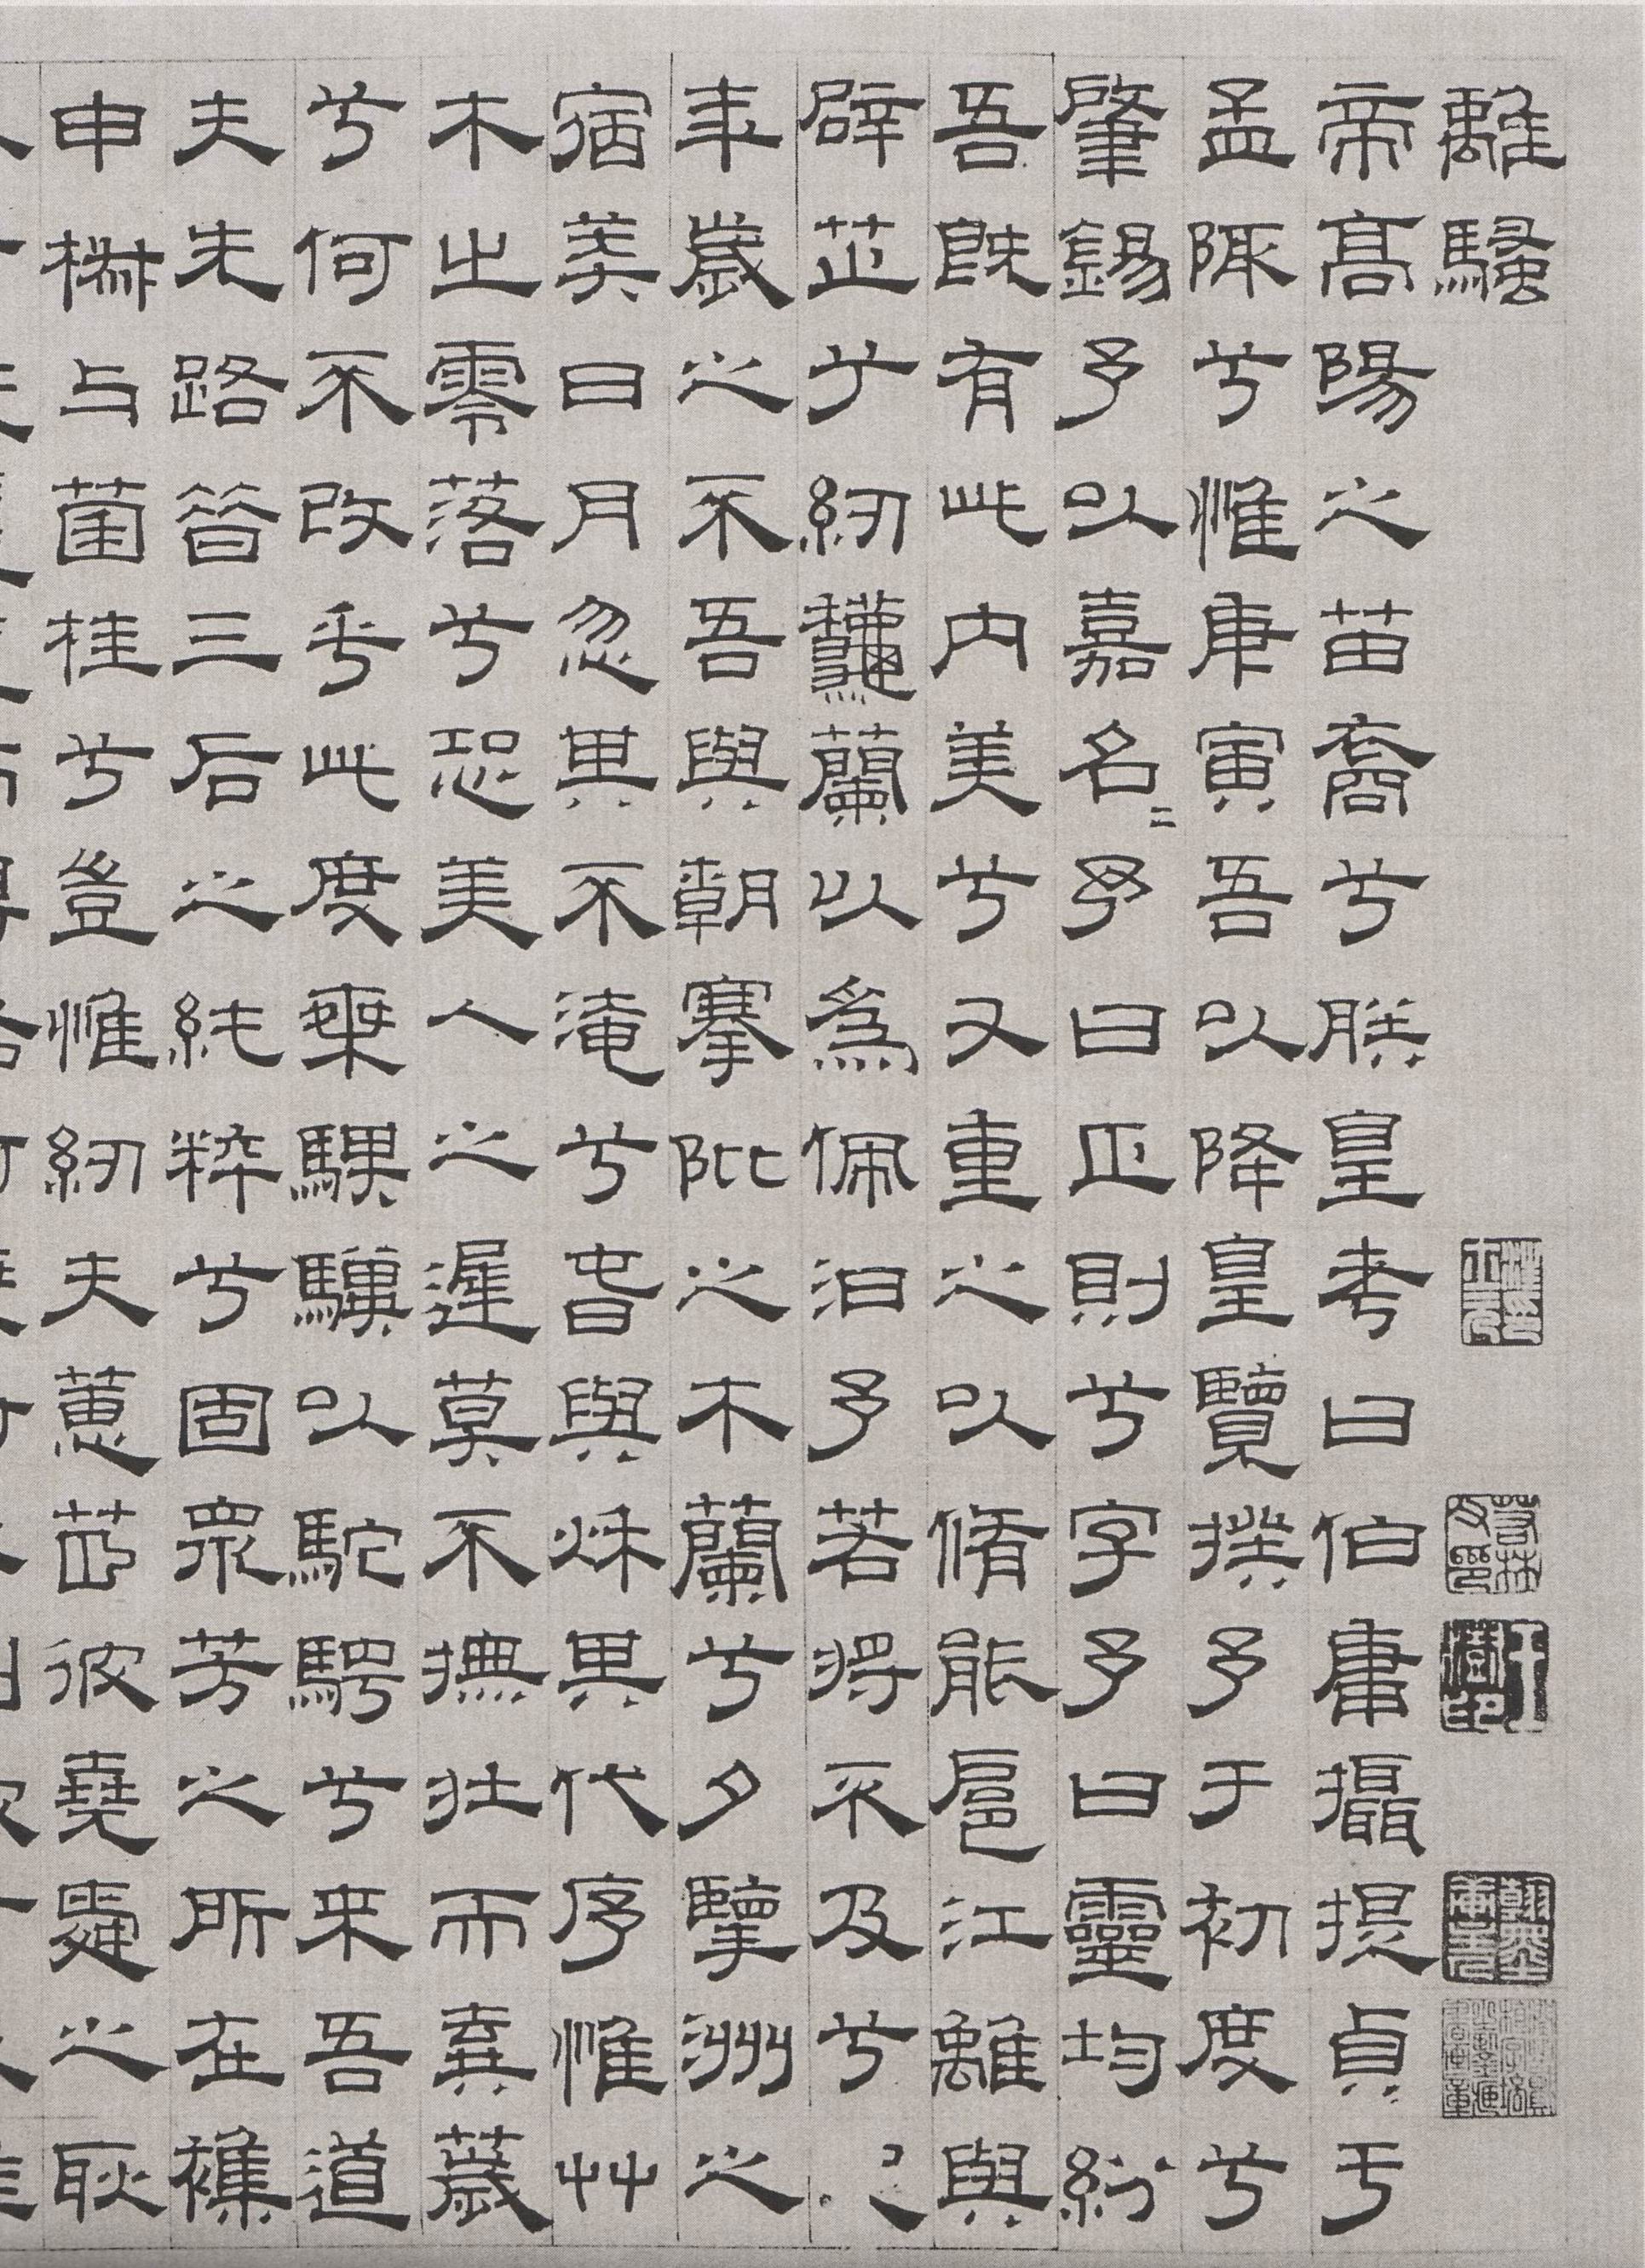 離騷
帝高陽之苗裔兮朕皇考曰伯庸攝提貞于
孟陬兮惟庚寅吾以降皇覽揆予于初度兮
肇錫予以嘉名〻予曰正則兮字予曰靈均紛
吾既有此内美兮又重之以脩能扈江離與
辟芷兮紉龝蘭以爲佩汩予若將不及兮
年歲之不吾與朝搴阰之木蘭兮夕擥洲之
宿莽日月忽其不淹兮春與秋其代序惟艸
木之零落兮恐美人之遲莫不撫壯而棄薉
兮何不改乎此度乘騏驥以駝騁兮來吾道
夫先路昔三后之純粹兮固衆芳之所在襍
申椒与菌桂兮豈惟紉夫蕙茝彼堯舜之耿